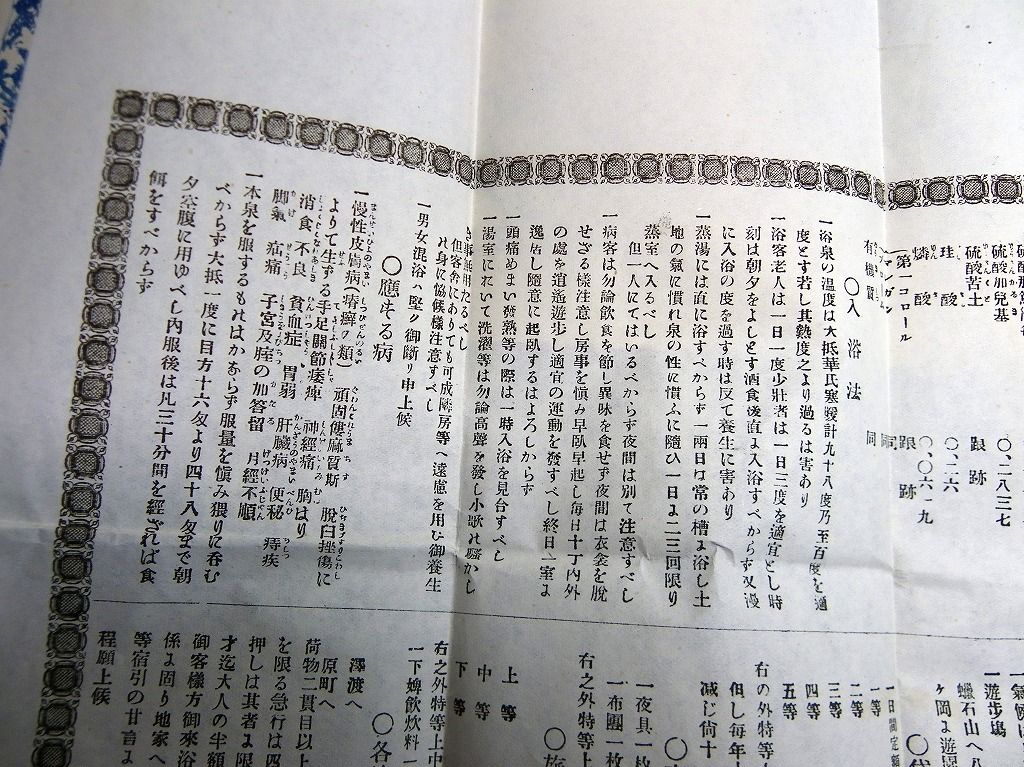 硫酸加兒基
硫酸苦土
珪酸
燐酸
（第一コロール
有機質
〇、二八三七
跟跡
〇、二六
〇、〇六一九
跟跡
同
〇入浴法
一浴泉の温度は大抵華氏寒暖計九十八度乃至百度を適
度とす若し其熱度之より過るは害あり
一浴客老人は一日一度少壯者は一日三度を適宜とし時
刻は朝夕をよしとす酒食後直ょ入浴すべからず又漫
に入浴の度を過す時は反て養生に害あり
一蒸湯には直に浴すべからず一兩日は常の槽ょ浴し土
地の氣に慣れ泉の性に慣ふに隨ひ一日ょ二三回限り
蒸室へ入るべし
但一人にてはいるべからず夜間は別て注意すべし
一病客は勿論飲食を節し異味を食せず夜間は衣衾を脱
せざる樣注意し房事を愼み早臥早起し毎日十丁内外
の處を逍遙遊歩し適宜の運動を發すべし終日一室ょ
逸居し隨意に起臥するはよろしからず
一頭痛めまい發熱等の際は一時入浴を見合すべし
一湯室にれいて洗濯等は勿論高聲を發し小歌れ騷かし
但客舍にありても可成隣房等へ遠慮を用ひ御養生
れ身に恊候樣注意すべし
一男女混浴ハ堅ク御斷り申上候
〇應する病
一慢性皮膚病（痔癬の類）頑固僂麻質斯 脫臼挫傷に
よりて生ずる手足關節痿痺 神經痛 胸はり
消食不良 貧血症 胃弱 肝臟病 便秘 痔疾
脚氣 疝痛 子宮及腟の加答留 月經不順
一本泉を服するものはかならず服量を愼み猥りに呑む
べからず大抵一度に目方十六匁より四十八匁まで朝
夕空腹に用ゆべし内服後は凡三十分間を經ざれば食
餌をすべからず
一遊歩塲
蠟石山へ八
ヶ岡ょ遊園
一等
二等
三等
四等
五等
右の外特等
但し毎年十
減じ
一夜具一枚
一布團一枚
右之外特等上
上等
中等
下等
右之外特等上中
一下婢飲炊料一
〇各
澤渡へ
原町へ
荷物二貫目以上
を限る急行は四
押しは其者ょ限
才迄大人の半額
御客樣方御來浴
係ょ周り地家へ
等宿引の甘言ょ
程願上候